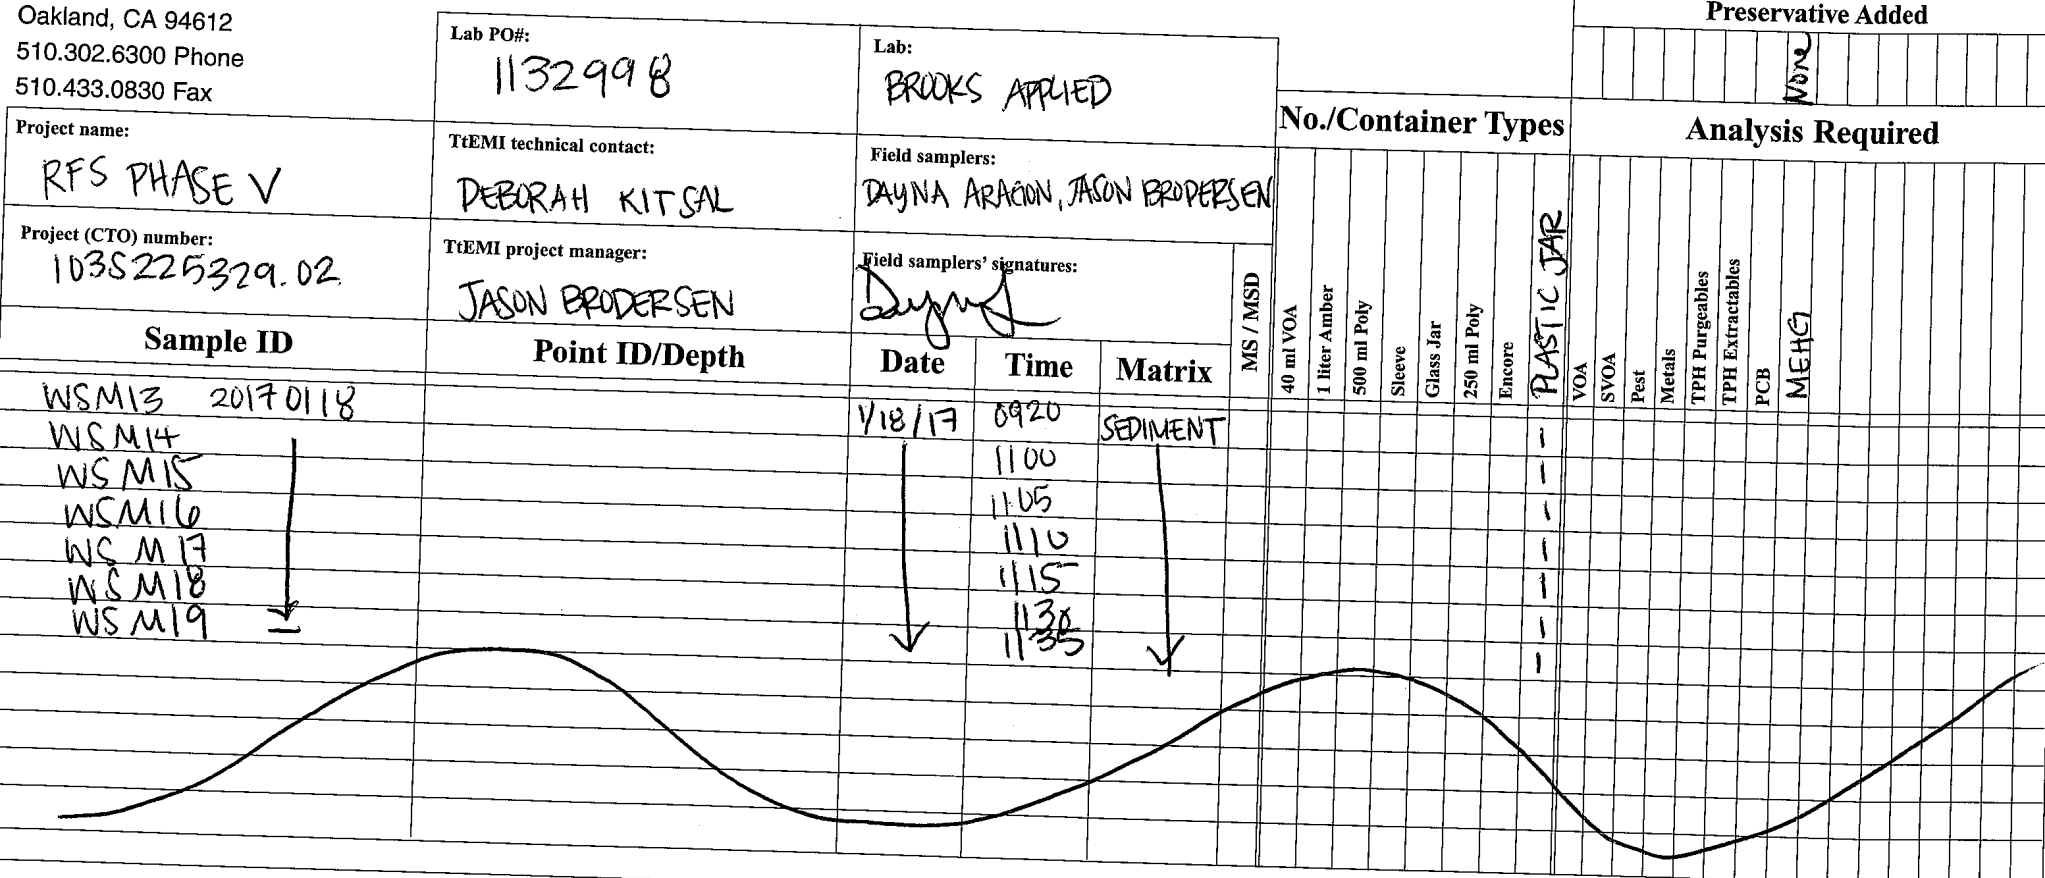 Oakland, CA 94612
510.302.6300 Phone
510.433.0830 Fax
Lab PO#:
1132998
Lab:
BROOKS APPLIED
Preservative Added
None
No./Container Types
Analysis Required
Project name:
RFS PHASE V
TtEMI technical contact:
DEBORAH KITSAL
Field samplers:
DAYNA ARAGON, JASON BRODERSEN
Project (CTO) number:
103S225329.02
TtEMI project manager:
JASON BRODERSEN
Field samplers' signatures:
MS / MSD
40 ml VOA
1 liter Amber
500 ml Poly
Sleeve
Glass Jar
250 ml Poly
Encore
PLASTIC JAR
VOA
SVOA
Pest
Metals
TPH Purgeables
TPH Extractables
PCB
MEHG
Sample ID
Point ID/Depth
Date
Time
Matrix
WSM13 20170118 1/18/17 0920 SEDIMENT 1
WSM14 1100 1
WSM15 1105 1
WSM16 1110 1
WSM17 1115 1
WSM18 1130 1
WSM19 1135 1